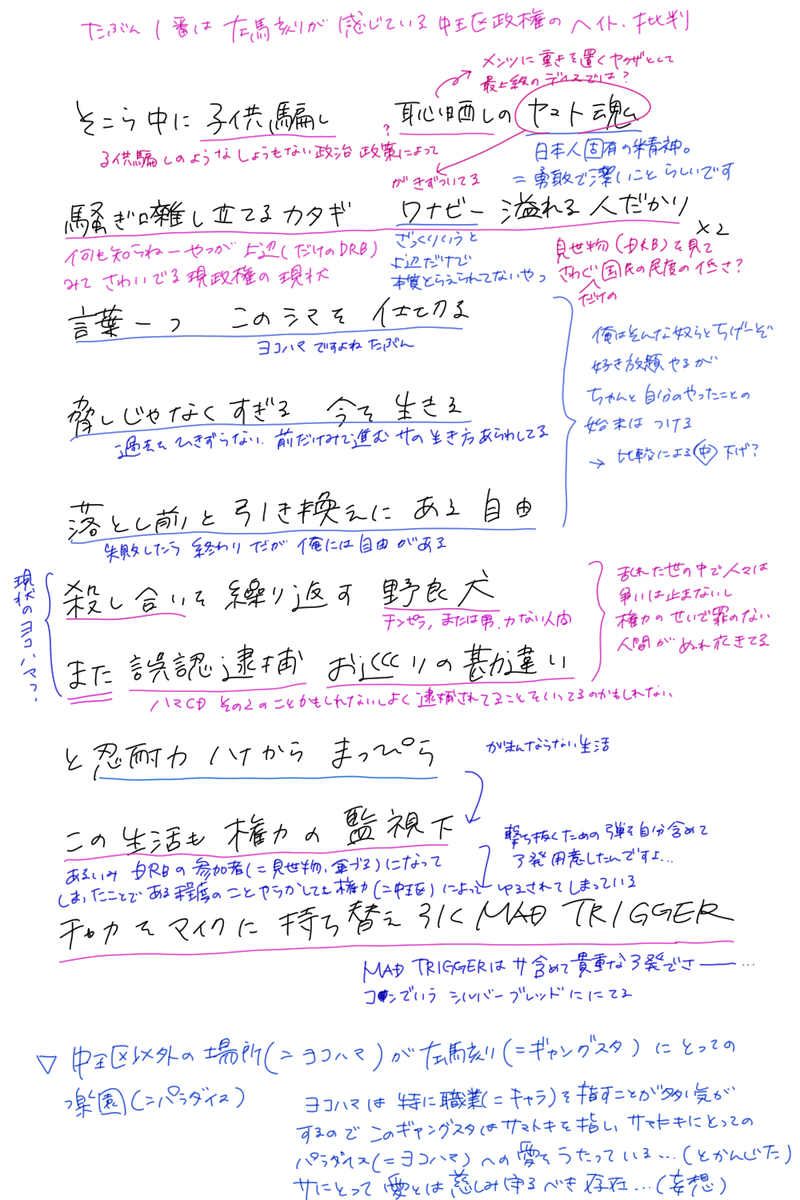 たぶん1番は 左馬刻が 感じている 中王区政権の ヘイト・批判
メンツに重きを置くヤクザとして
最上級のディスでは?
そこら中に 子供騙し 恥晒しの ヤマト魂
子供騙しのような しょうもない政治 政策によって
?
がきずついてる
日本人固有の精神。
=勇敢で潔いこと らしいです
騒ぎ囃し立てる カタギ ワナビー 溢れる 人だかり ×2
何も知らねーやつが 上辺(だけのDRB)
みて さわいでる 現政権の 現状
ざっくりいうと
上辺だけで
本質とらえられてないやつ
見世物(DRB)を見て
さわぐ国民の民度の低さ?
だけの
言葉一つ このシマを 仕切る
ヨコハマ ですよね たぶん
俺はそんな奴らとちげーぞ
好き放題 やるが
ちゃんと自分のやったことの
始末は つける
→ 比較による 中 下げ?
脅しじゃなく すぎる 今を 生きる
過去を ひきずらない 前だけみて進む サの 生き方 あらわしてる
落とし前と 引き換えに ある 自由
失敗したら 終わり だが 俺には自由がある
現状のヨコハマっ?
殺し合いを 繰り返す 野良犬
チンピラ、または男、力ない人間
乱れた世の中で人々は
争いは止まないし
権力のせいで罪のない
人間が ぬれ衣きてる
また 誤認逮捕 お巡りの 勘違い
ハマCD その2の ことかもしれないし よく 逮捕されてることを いってるのかもしれない
と 忍耐力 ハナから まっぴら
がまんならない生活
この 生活も 権力の 監視下
あるいみ DRBの 参加者(=見世物、金づる)になって
しまったことで ある程度の ことやらかしても 権力(=中王区)によって ゆるされてしまっている
撃ち抜くための弾を自分含めて
3発用意したんですよ…
チャカを マイクに 持ち替え 引く MAD TRIGGER
MAD TRIGGERは サ含めて 貴重な3発でさ――…
コナンでいう シルバーブレッドに にてる
▽ 中王区以外の 場所(=ヨコハマ)が 左馬刻(=ギャングスタ)に とっての
楽園(=パラダイス)
ヨコハマは 特に職業(=キャラ)を指すことが多い気が
するので このギャングスタは サマトキを 指し、サマトキにとっての
パラダイス(=ヨコハマ)への 愛を うたっている…(とかんじた)
サにとって 愛とは 慈しみ 守るべき 存在…(妄想)